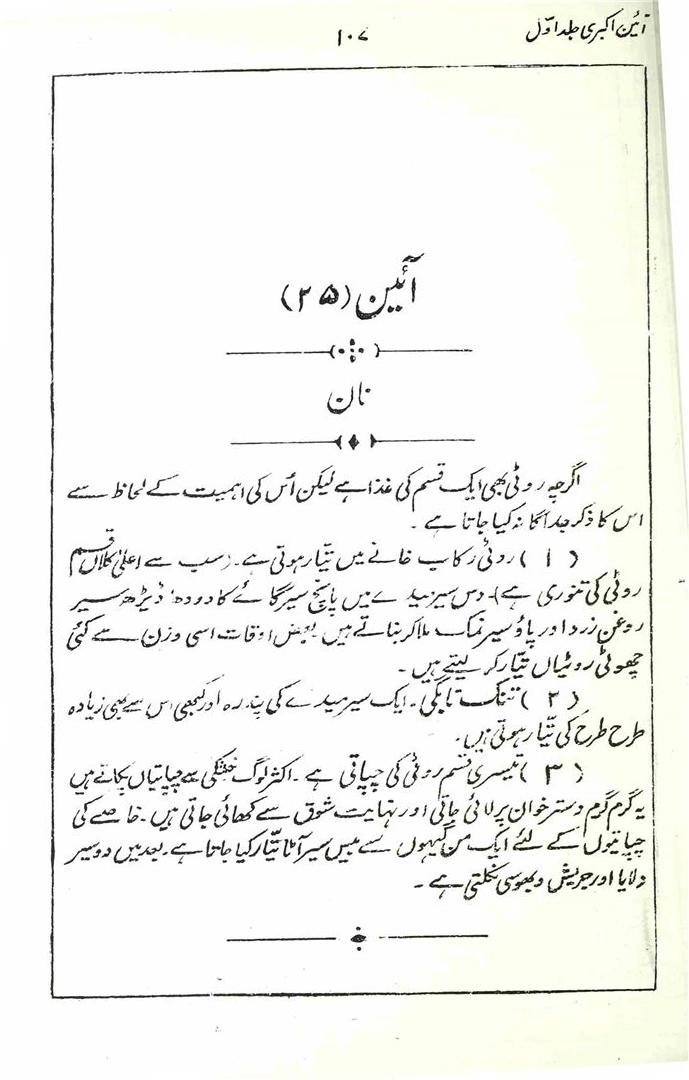 آئین اکبری جلد اوّل
۱۰۷
آئین (۲۵)
نان
اگرچہ روٹی بھی ایک قسم کی غذا ہے لیکن اُس کی اہمیت کے لحاظ سے
اس کا ذکر جداگانہ کیا جاتا ہے ۔
(۱) روٹی رکاب خانے میں تیّار ہوتی ہے۔ (سب سے اعلیٰ کلاں قسم
روٹی کی تنوری ہے) دس سیر میدے میں پانچ سیر گائے کا دودھ' ڈیڑھ سیر
روغن زرد اور پاؤ سیر نمک ملا کر بناتے ہیں۔ بعض اوقات اسی وزن سے کئی
چھوٹی روٹیاں تیّار کر لیتے ہیں ۔
(۲) تنک تابگی ۔ ایک سیر میدے کی پندرہ اور کبھی اس سے بھی زیادہ
طرح طرح کی تیّار ہوتی ہیں۔
(۳) تیسری قسم روٹی کی چپاتی ہے ۔ اکثر لوگ خشکی سے چپاتیاں پکاتے ہیں
یہ گرم گرم دسترخوان پر لائی جاتی اور نہایت شوق سے کھائی جاتی ہیں ۔ خاصے کی
چپاتیوں کے لئے ایک من گیہوں سے بیس سیر آٹا تیّار کیا جاتا ہے۔ بعد میں دو سیر
دلایا اور جریش و بھوسی نکلتی ہے ۔